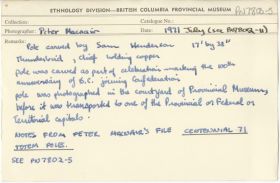 ETHNOLOGY DIVISION—BRITISH COLUMBIA PROVINCIAL MUSEUM PN7803-5
Collection: Catalogue No.:
Photographer: Peter Macnair Date: 1971 July (see PN7802-11)
Remarks:
Pole carved by Sam Henderson 17' by 38"
Thunderbird, chief holding copper
pole was carved as part of celebration marking the 100th
anniversary of B.C. joining Confederation
pole was photographed in the courtyard of Provincial Museum
before it was transported to one of the Provincial or Federal or
Territorial capitals.
NOTES FROM PETER MACNAIR'S FILE CENTENNIAL 71
TOTEM POLES.
SEE PN7802-5